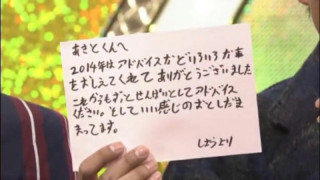 あきとくんへ
2014年は アドバイスかどいろいろか事
をおしえてくれて ありがとうございました
これからもずっと せんぱいとしてアドバイス
ください。そしていい感じのおとしだま
まってます。
しょうより